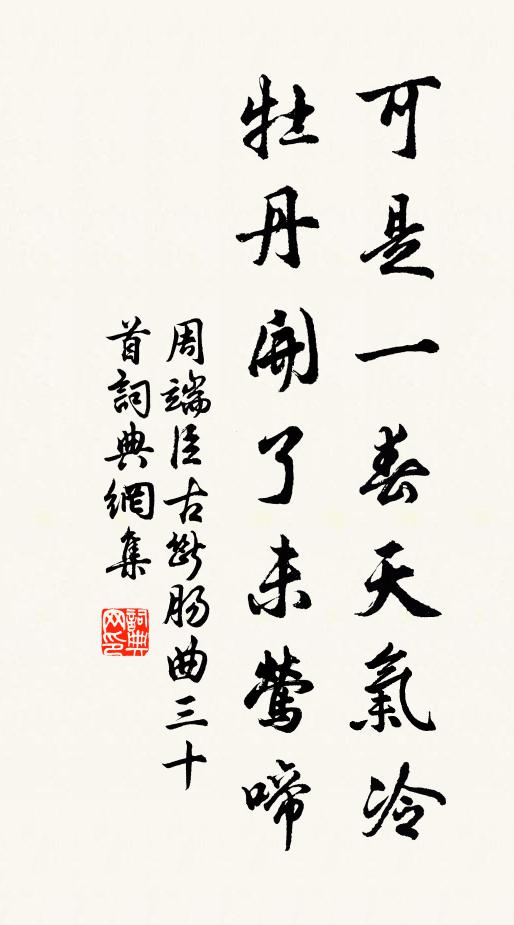 可是一春天氣冷
牡丹開了未鶯啼
周端臣古斷腸曲三十
首詞典網集
詞典網印